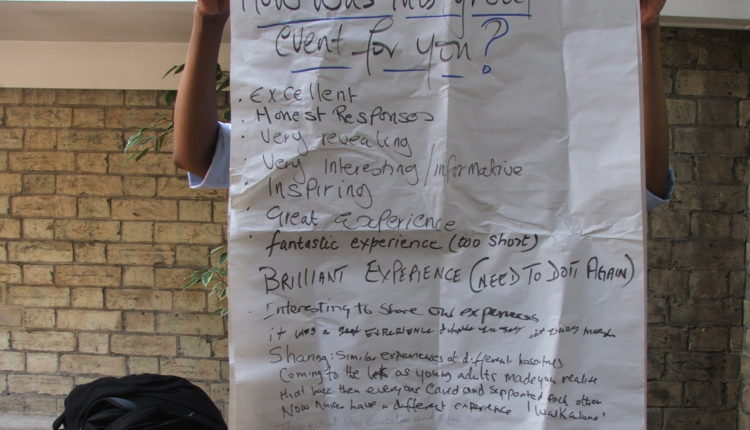 How was this great
event for you?
. Excellent
. Honest Responses
. Very revealing
. Very Interesting/informative
. Inspiring
. Great experience
. fantastic experience (too short)
BRILLIANT EXPERIENCE (NEED TO DO IT AGAIN)
. Interesting to share our experiences
it was a great EXPERIENCE
Sharing: Similar experiences at different hospitals
Coming to the as young adults made you realise
that back then everyone cared and supported each other
Now nurses have a different experience 'I walk alone'